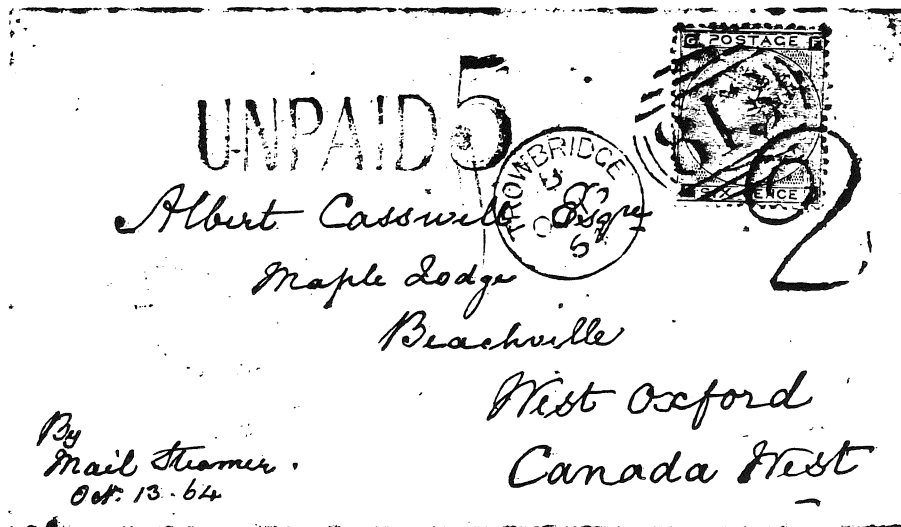 G POSTAGE F
UNPAID 5
813
SIX PENCE
2
TROWBRIDGE
Albert Casswell Esqre
Maple Lodge
Beachville
West Oxford
Canada West
By
Mail Steamer.
Oct. 13 - 64